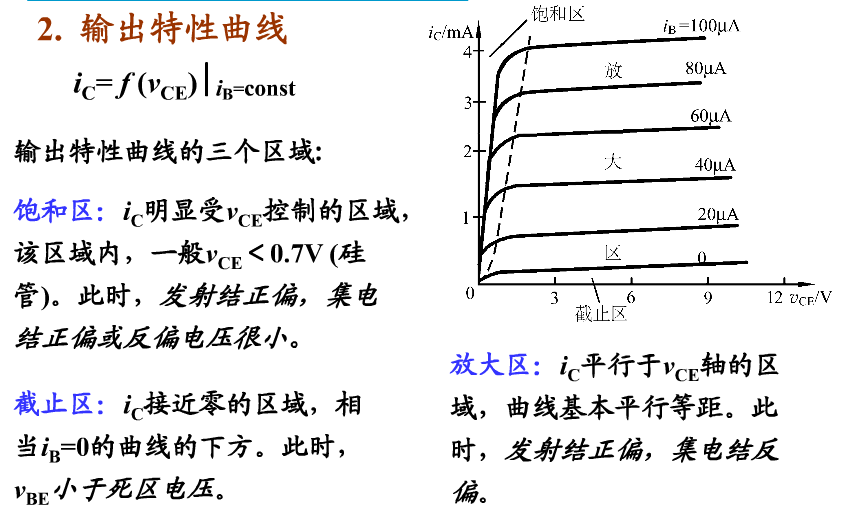 2. 输出特性曲线
iC= f (vCE)│iB=const
输出特性曲线的三个区域:
饱和区：iC明显受vCE控制的区域，
该区域内，一般vCE＜0.7V (硅
管)。此时，发射结正偏，集电
结正偏或反偏电压很小。
截止区：iC接近零的区域，相
当iB=0的曲线的下方。此时，
vBE小于死区电压。
饱和区
iC/mA
iB=100μA
4
放
80μA
3
60μA
2
大
40μA
1
20μA
区
0
0
3
6
9
12
vCE/V
截止区
放大区：iC平行于vCE轴的区
域，曲线基本平行等距。此
时，发射结正偏，集电结反
偏。